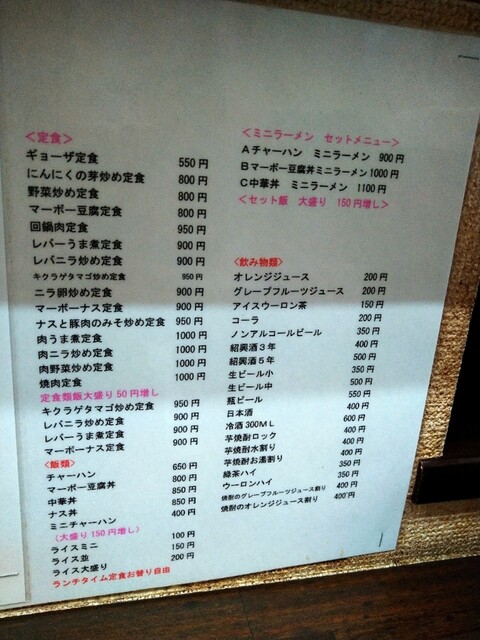 ＜定食＞
ギョーザ定食 550円
にんにくの芽炒め定食 800円
野菜炒め定食 800円
マーボー豆腐定食 800円
回鍋肉定食 950円
レバーうま煮定食 900円
レバニラ炒め定食 900円
キクラゲタマゴ炒め定食 950円
ニラ卵炒め定食 900円
マーボーナス定食 900円
ナスと豚肉のみそ炒め定食 950円
肉うま煮定食 1000円
肉ニラ炒め定食 1000円
肉野菜炒め定食 1000円
焼肉定食 1000円
定食類飯大盛り50円増し
キクラゲタマゴ炒め定食 950円
レバニラ炒め定食 900円
レバーうま煮定食 900円
マーボーナス定食 900円
＜飯類＞
チャーハン 650円
マーボー豆腐丼 800円
中華丼 850円
ナス丼 850円
ミニチャーハン 400円
（大盛り150円増し）
ライスミニ 100円
ライス並 150円
ライス大盛り 200円
ランチタイム定食お替り自由
＜ミニラーメン セットメニュー＞
Aチャーハン ミニラーメン 900円
Bマーボー豆腐丼ミニラーメン1000円
C中華丼 ミニラーメン 1100円
＜セット飯 大盛り 150円増し＞
＜飲み物類＞
オレンジジュース 200円
グレープフルーツジュース 200円
アイスウーロン茶 150円
コーラ 200円
ノンアルコールビール 350円
紹興酒3年 400円
紹興酒5年 500円
生ビール小 350円
生ビール中 500円
瓶ビール 550円
日本酒 400円
冷酒300ML 600円
芋焼酎ロック 400円
芋焼酎水割り 400円
芋焼酎お湯割り 400円
緑茶ハイ 350円
ウーロンハイ 350円
焼酎のグレープフルーツジュース割り 400円
焼酎のオレンジジュース割り 400円